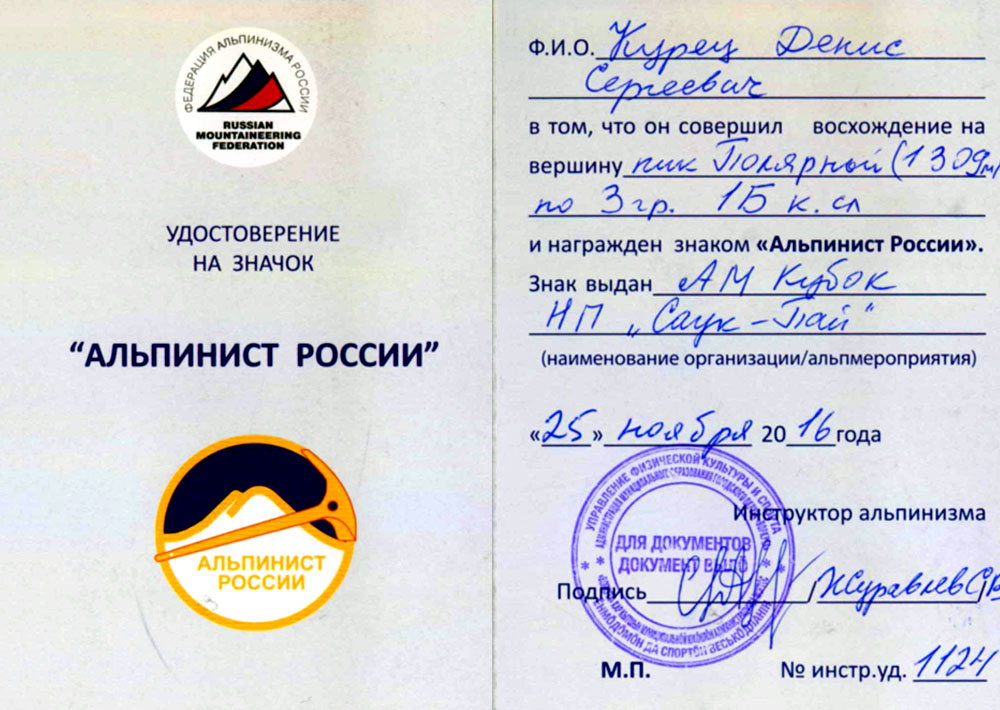 ФЕДЕРАЦИЯ АЛЬПИНИЗМА РОССИИ
RUSSIAN
MOUNTAINEERING
FEDERATION
УДОСТОВЕРЕНИЕ
НА ЗНАЧОК
“АЛЬПИНИСТ РОССИИ”
АЛЬПИНИСТ
РОССИИ
Ф.И.О. Курец Денис
Сергеевич
в том, что он совершил восхождение на
вершину пик Полярный (1309м)
по 3гр. 1Б к.сл
и награжден знаком «Альпинист России».
Знак выдан АМ Кубок
НП „Саук-Пай“
(наименование организации/альпмероприятия)
«25» ноября 2016 года
Инструктор альпинизма
УПРАВЛЕНИЕ ФИЗИЧЕСКОЙ КУЛЬТУРЫ И СПОРТА
ДЛЯ ДОКУМЕНТОВ
Подпись /Журавлев С
М.П. № инстр.уд. 1124